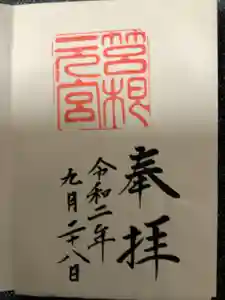 筥根元宮
奉拝
令和二年
九月二十八日